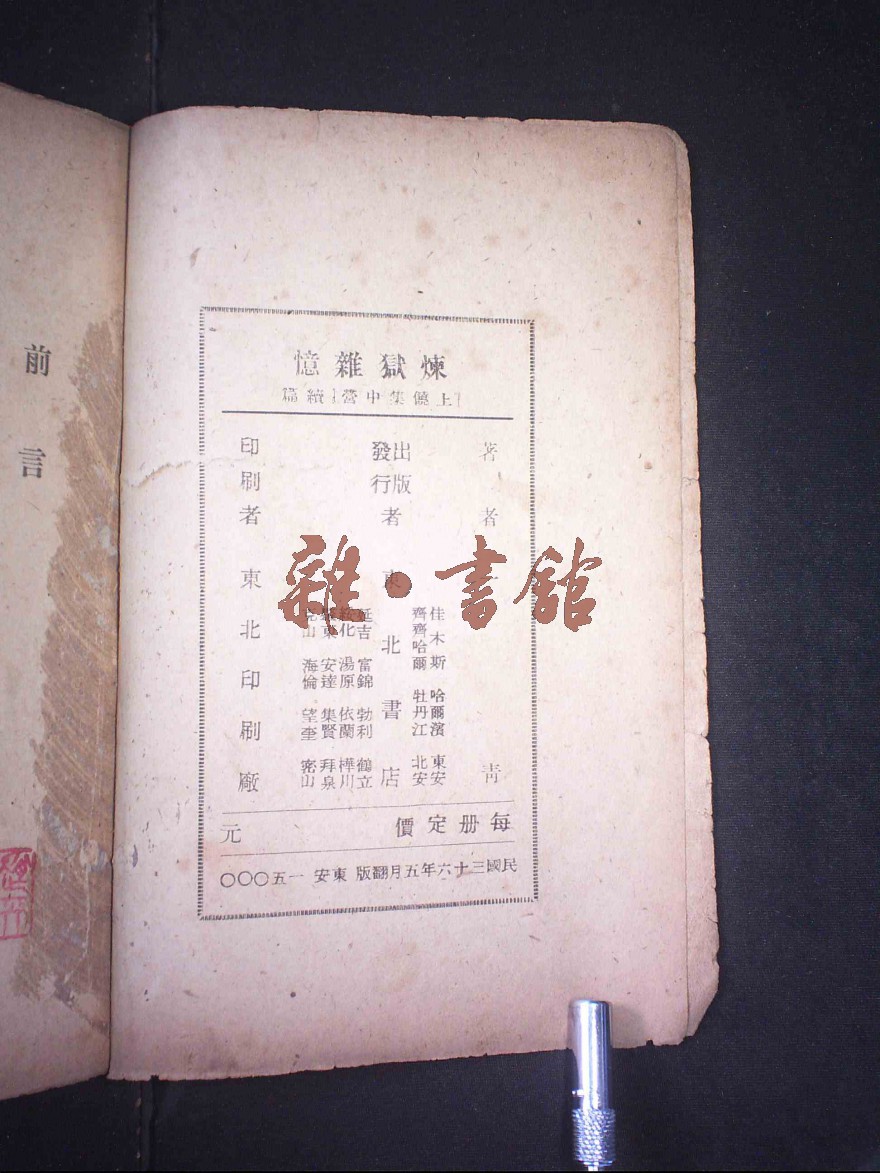 煉獄雜憶
「上饒集中營」續篇
著者 青
出版
發行
者 東北書店
佳木斯 哈爾濱 東安
齊齊哈爾 牡丹江 北安
延吉 富錦 勃利 鶴立
綏化 湯原 依蘭 樺川
肇東 安達 集賢 拜泉
克山 海倫 望奎 密山
印刷者 東北印刷廠
每册定價 元
民國三十六年五月翻版 東安 一五〇〇〇
前言
雜·書館